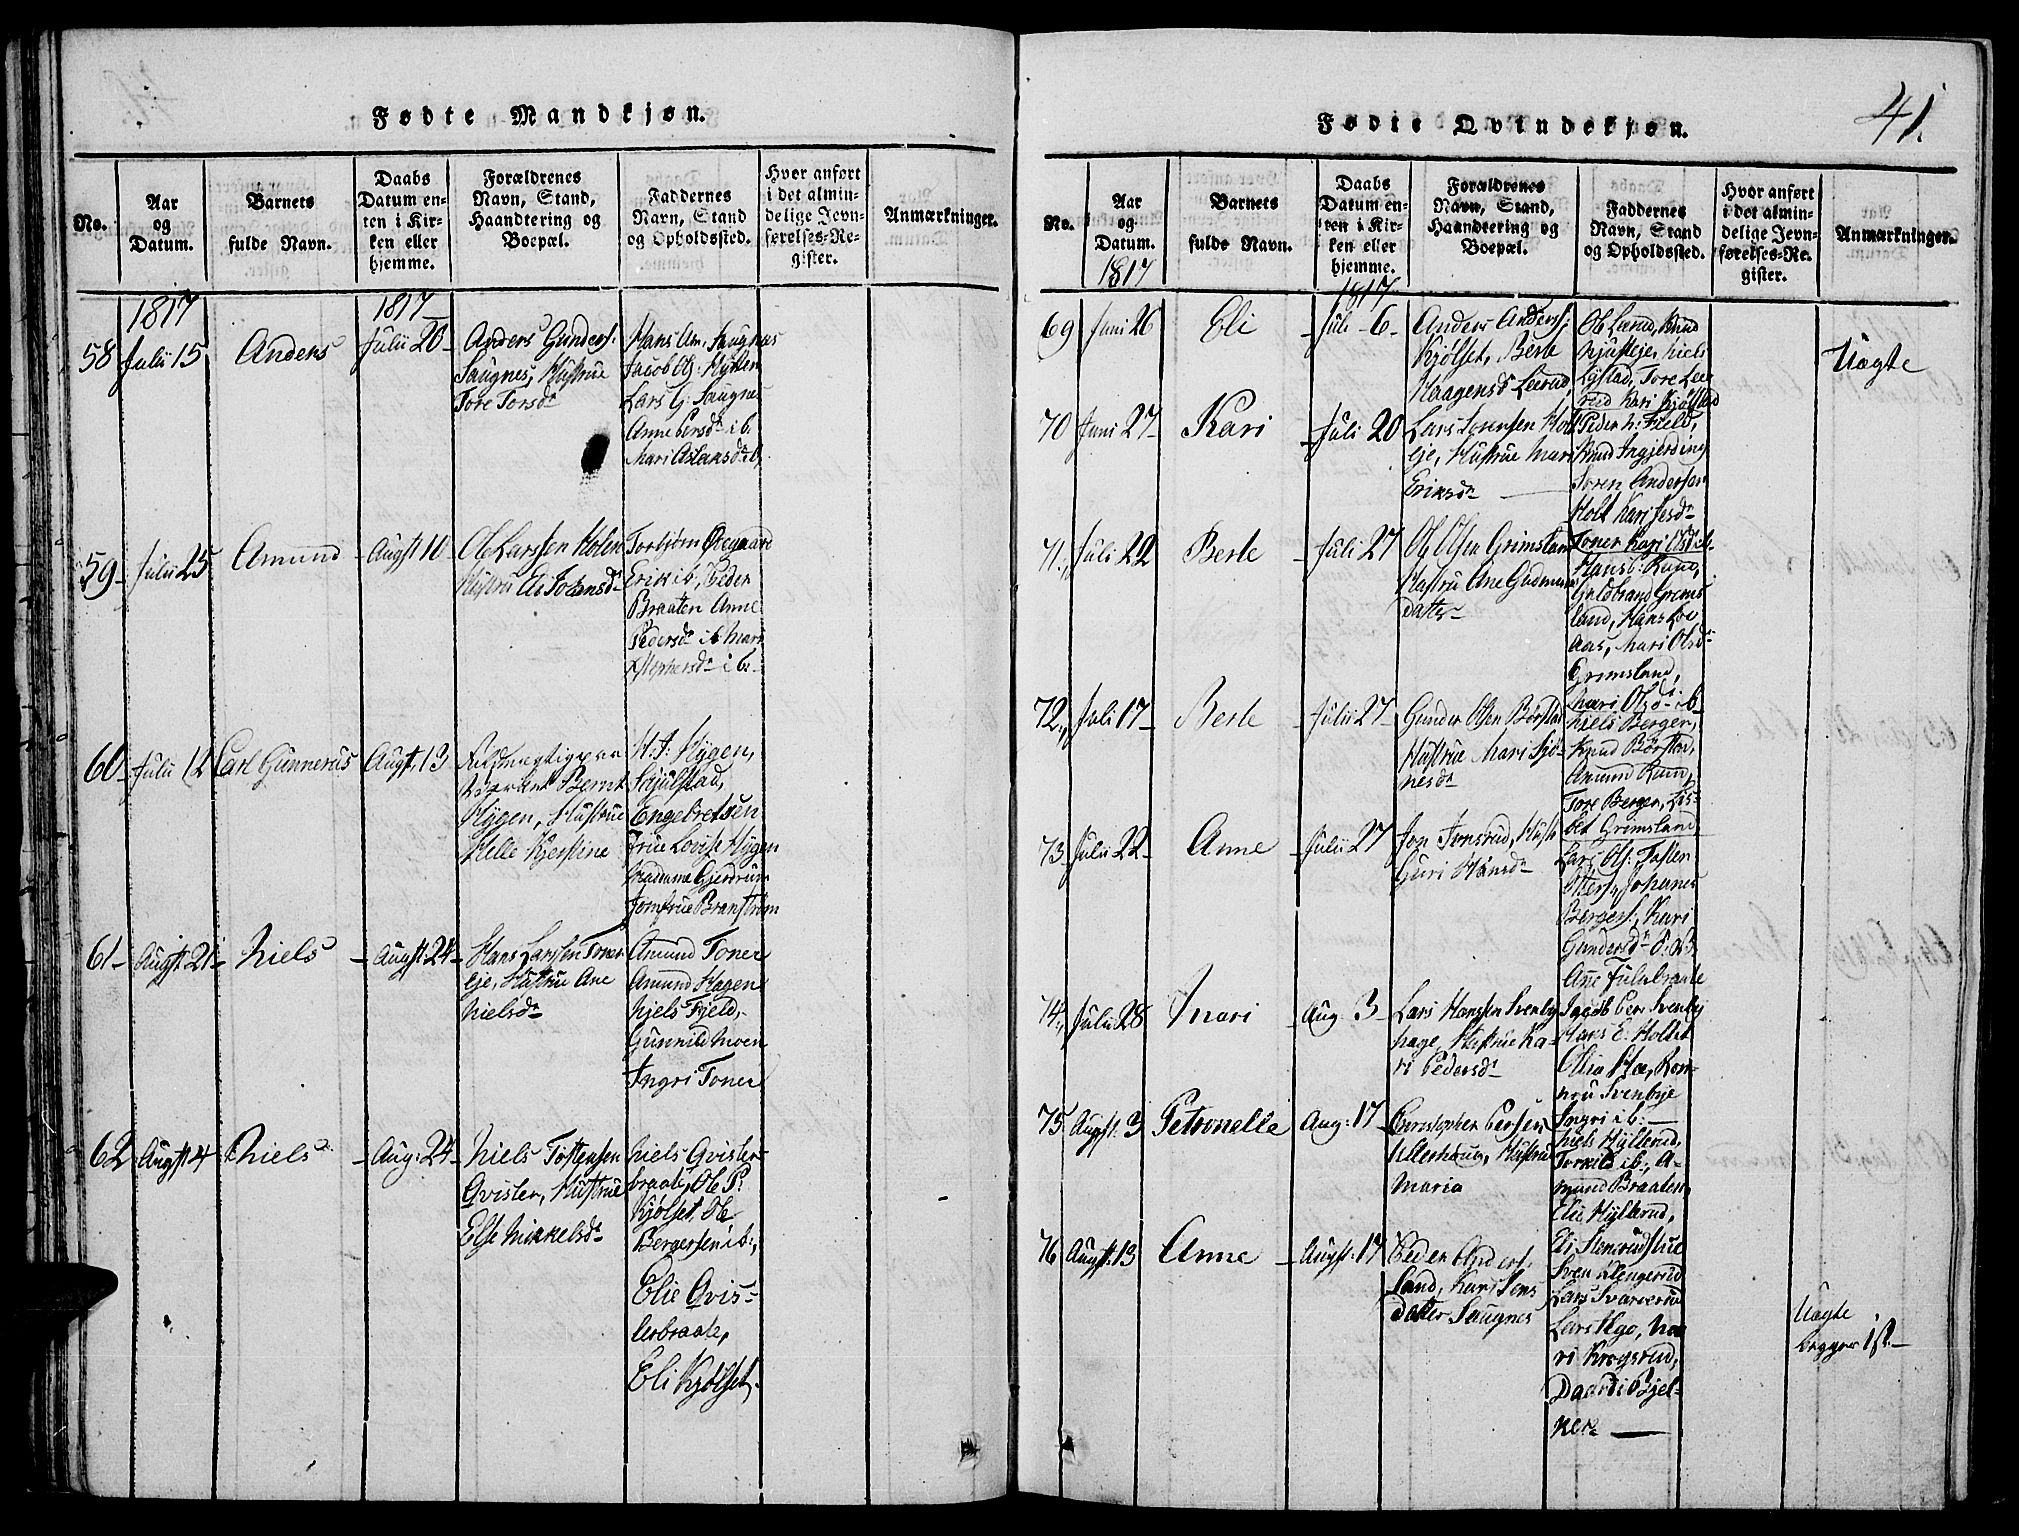 Fødte Mandkjøn.
No.
Aar
og
Datum.
Barnets
fulde Navn.
Daabs
Datum en-
ten i Kir-
ken eller
hjemme.
Forældrenes
Navn, Stand,
Haandtering og
Boepæl.
Faddernes
Navn, Stand
og Opholdssted.
Hvor anført
i det almin-
delige Jevn-
førelses-Re-
gister.
Anmærkninger.
1817
1817
58
Julii 15
Anders
Julii 20
Anders Gunders:
Saugnes, Hustrue
Tore Torsdr
Hans Am: Saugnes
Jacob Ols: Hytten
Lars G: Saugnes
Anne Persdr ib.
Mari Aslaksdr ib.
59
Julii 25
Amund
Augst 10
Ole Larssen Holen
Hustru Eli Johansdr
Torbjørn Øvegaard
Erik ib, Peder
Braaten Anne
Pedersdr ib Mari
ib.
60
Julii 12
Carl Gunnerus
Augst. 13
Bernt
Hygen, Hustrue
Helle Kjerstine
H. A: Hygen,
Skjulstad,
Engebretsen
Frue Lovise Hygen
Madame Gjerdrum
Jomfrue Branstrøm
61
Augst 21
Niels
Augst 24
Hans Larssen Toner
eje, Hustrue Ane
Nielsdr
Amund Toner
Amund Hagen
Niels Fjeld,
Gunnild Moen
Ingri Toner
62
Augst 4
Niels
Aug: 24
Niels Tostensen
Qvisler, Hustrue
Else Mikkelsdr
Niels Qvisler-
braate, Ole P:
Kjølset, Ole
Bergersen ib:,
Elie Qvis-
lerbraate,
Eli Kjølset.
Fødte Qvindekjøn.
41.
No.
Aar
og
Datum.
1817
Barnets
fulde Navn.
Daabs
Datum en-
ten i Kir-
ken eller
hjemme.
1817
Forældrenes
Navn, Stand,
Haandtering og
Boepæl.
Faddernes
Navn, Stand
og Opholdssted.
Hvor anført
i det almin-
delige Jevn-
førelses-Re-
gister.
Anmærkninger.
69
Juni 26
Eli
Juli 6
Anders Anders:
Kjølset, Berte
Haagensdr Leerud
Ole Lerud, Knud
Niels
Lystad, Tore Lee
rud Kari Kjølstad
Uægte
70
Juni 27
Kari
Juli 20
Lars Sørensen Holt
eje, Hustrue Mari
Eriksdr
Peder N: Field,
Knud Ingjerding
Søren Andersen
Holt Kari Jesdr
71
Juli 22
Berte
Juli 27
Ole Olsen Grimsland
Hustrue Ane Gudmunds
datter
Toner Kari Olsdr ib.
Hans b: Rund,
Guldbrand Grims
land, Hans Loe
aas, Mari Olsdr
Grimsland,
72
Juli 17
Berte
Julii 27
Gunder Olsen Børstad
Hustrue Mari Sjø-
nesdr
Mari Olsdr ib
Niels Berger,
Knud Børstad,
Amund Rund,
Tore Berger, Lis-
bet Grimsland
73
Julii 22
Anne
Julii 27
Jon Jonsrud, Hustr
Guri Hansdr
Lars Ols: Tosten
Otters: Johanes
Bergers:, Kari
Gundersdr
Ane Fulubraate
74
Julii 28
Mari
Aug. 3
Lars Hanssen Svenby
hage, Hustrue Ka-
ri Pedersdr
Jacob Per Svenby
Hans E. Holtet
Elia Moe, Ron-
nou Svenbye
Ingri ib.
75
Augst. 3
Petronelle
Aug: 17
Christopher Persen
Ullerhoug, Hustrue
Maria
Niels Hyllerud,
Torkild ib:, A-
mund Braaten,
Elie Hyllerud,
Eli Stensrudstue
76
Augst. 13
Anne
Augst: 17
Peder Anders:
Land, Kari Jens
datter Saugnes
Sven Klengerud
Lars Svarverud
Lars Ilgo, Ma
ri Krogsrud,
Daardi Bjel-
ker
Uægte
begges 1st.